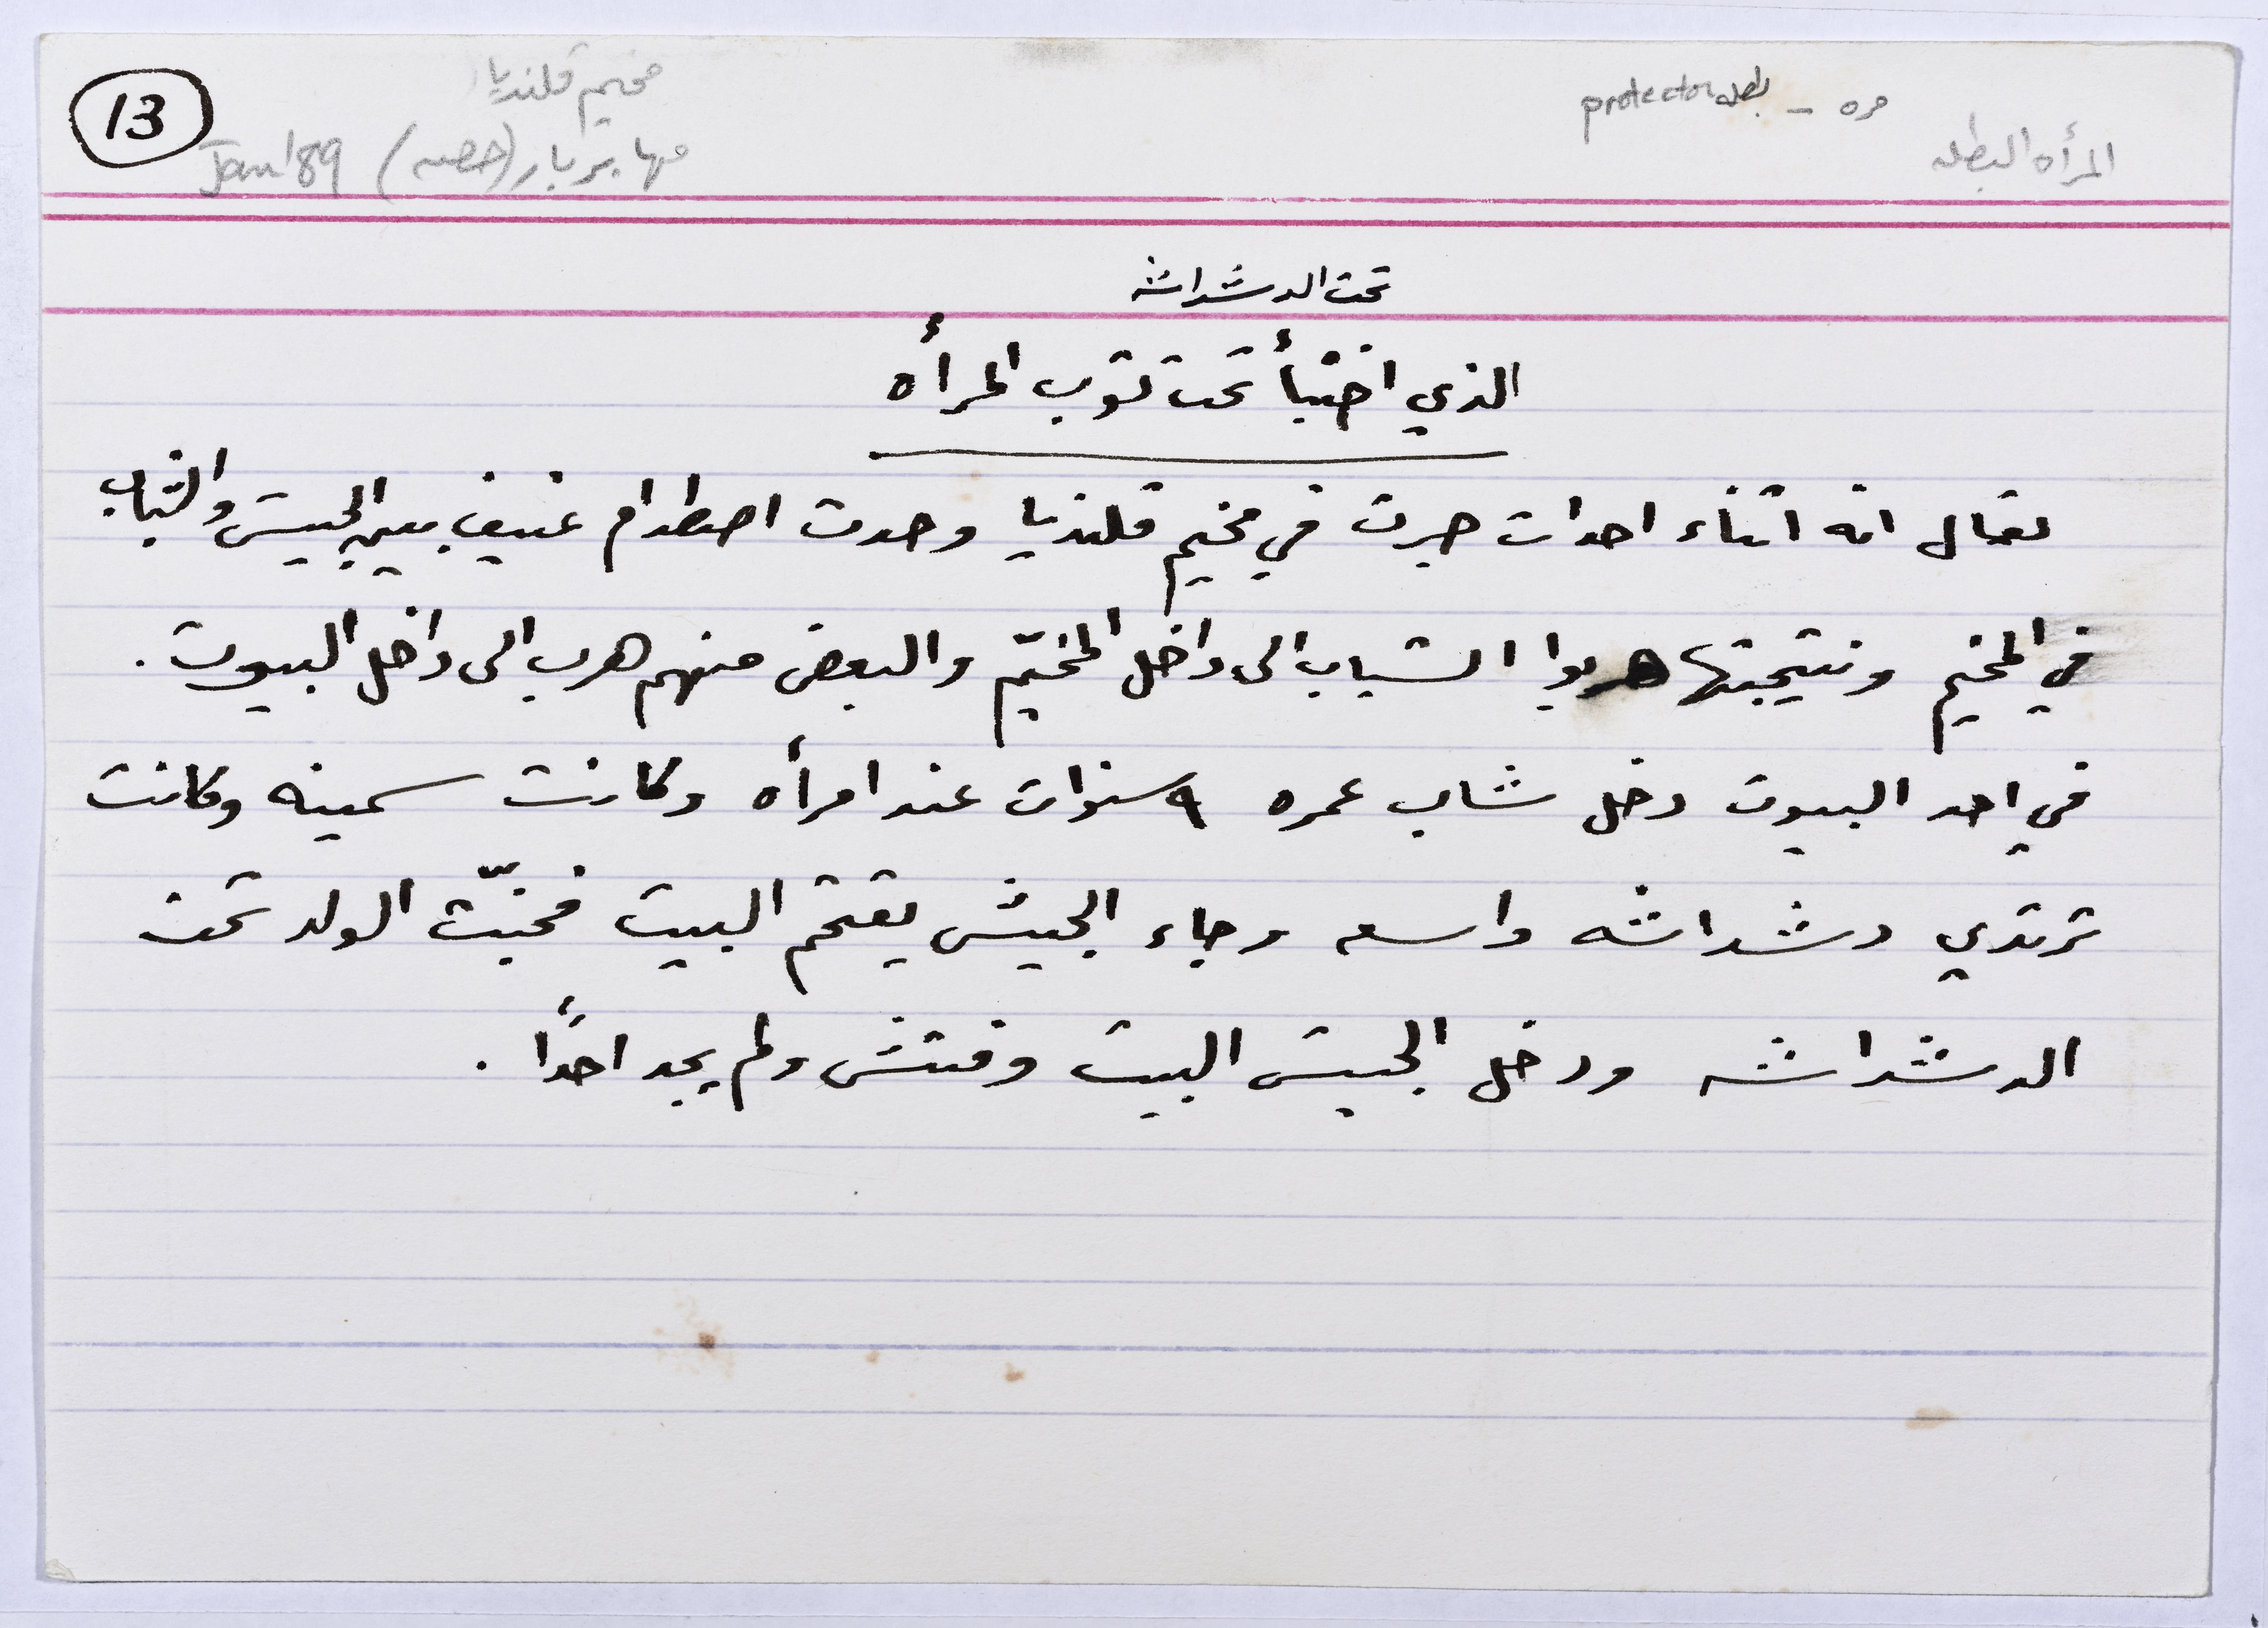 13
مخيم قلنديا
مها بربار (قصه) Jan '89
مره - بطله protector
المرأه البطله
تحت الدشداشه
الذي اختبأ تحت ثوب المرأه
يقال انه اثناء احداث جرت في مخيم قلنديا وحدث اصطدام عنيف بين الجيش والشباب
في المخيم ونتيجتها هربوا الشباب الى داخل المخيّم والبعض منهم هرب الى داخل البيوت .
في احد البيوت دخل شاب عمره ٩ سنوات عند امرأه وكانت سمينه وكانت
ترتدي دشداشه واسعه وجاء الجيش يقتحم البيت فخبّت الولد تحت
الدشداشه ودخل الجيش البيت وفتش ولم يجد احدًا .